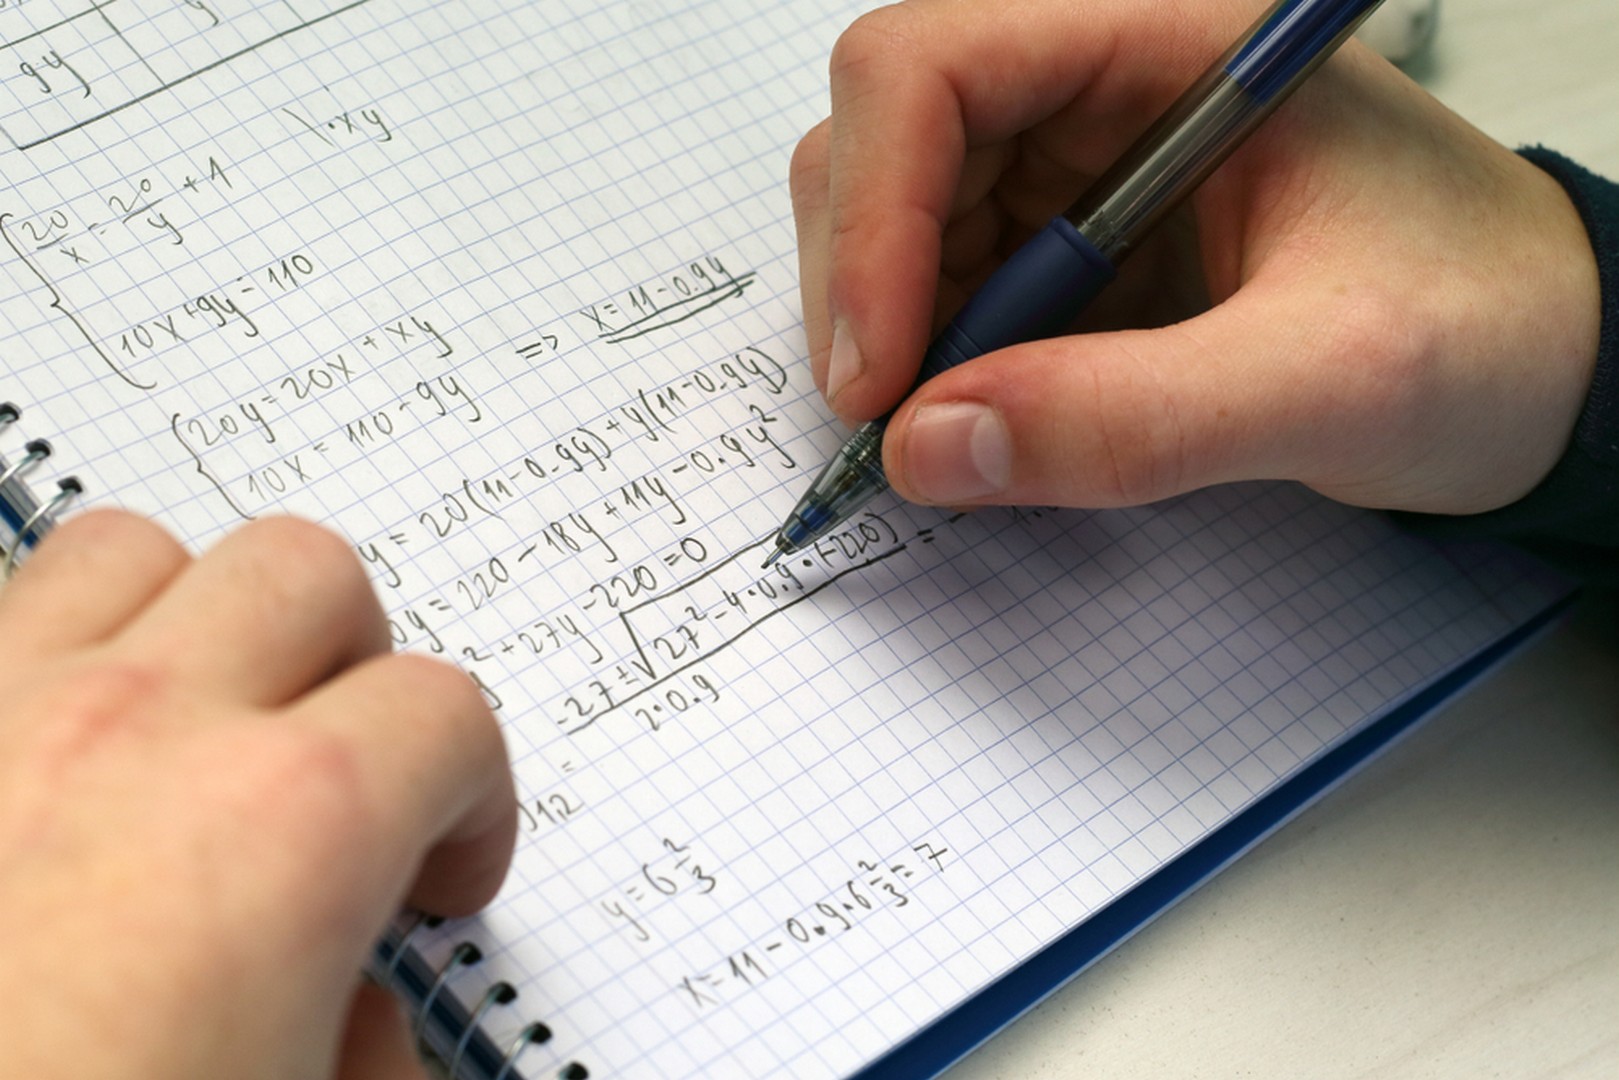 9y
\ · xy
20/x = 20/y + 1
10x + 9y = 110
20y = 20x + xy
10x = 110 - 9y => x = 11 - 0.9y
y = 20(11 - 0.9y) + y(11 - 0.9y)
0y = 220 - 18y + 11y - 0.9y²
² + 27y - 220 = 0
-27 ± √27² - 4·0.9·(-220) / 2·0.9 = -
1,2 =
y = 6 2/3
x = 11 - 0.9·6 2/3 = 7